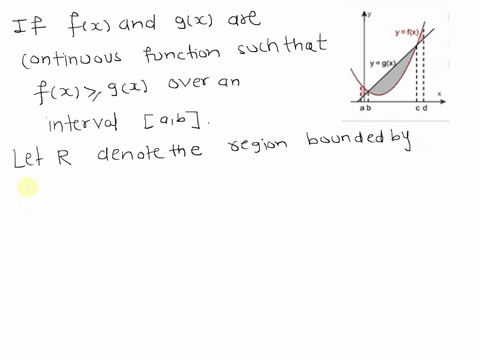 If f(x) and g(x) are
continuous function such that
f(x) ⩾ g(x) over an
interval [a,b].
Let R denote the region bounded by
y
y = f(x)
y = g(x)
x
a b c d